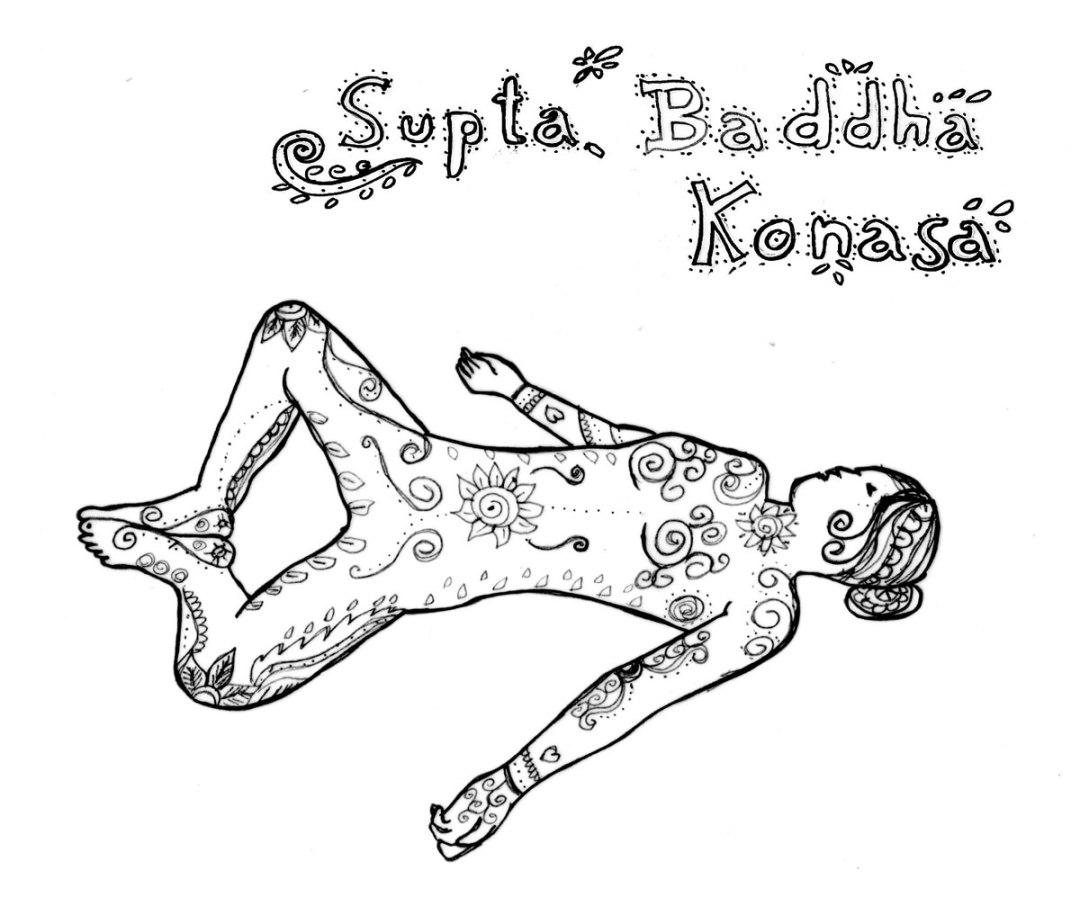 Supta Baddha
Konasa